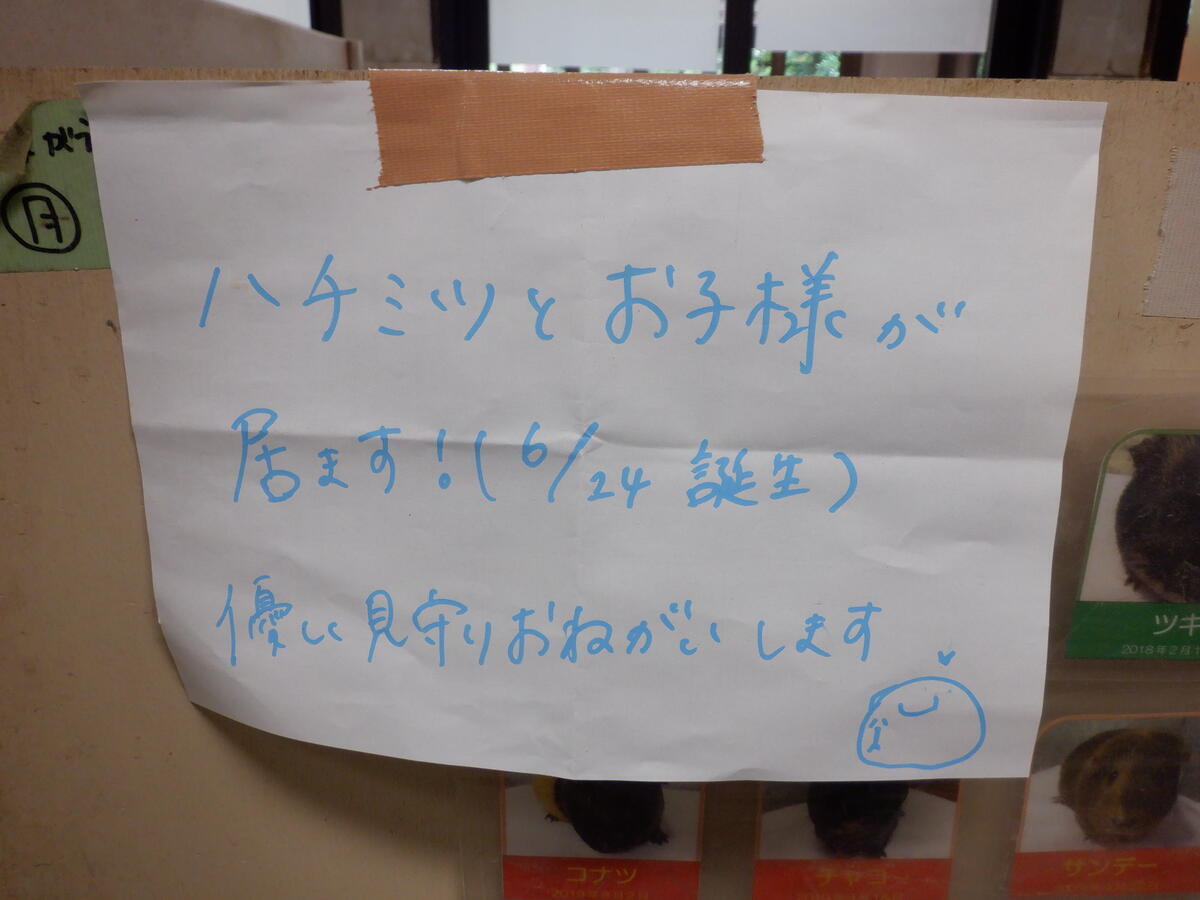 ハチミツとお子様が
居ます！(6/24 誕生)
優しい見守りおねがいします
月
ツキ
2018年2月1
コナツ
チャコ
サンデー